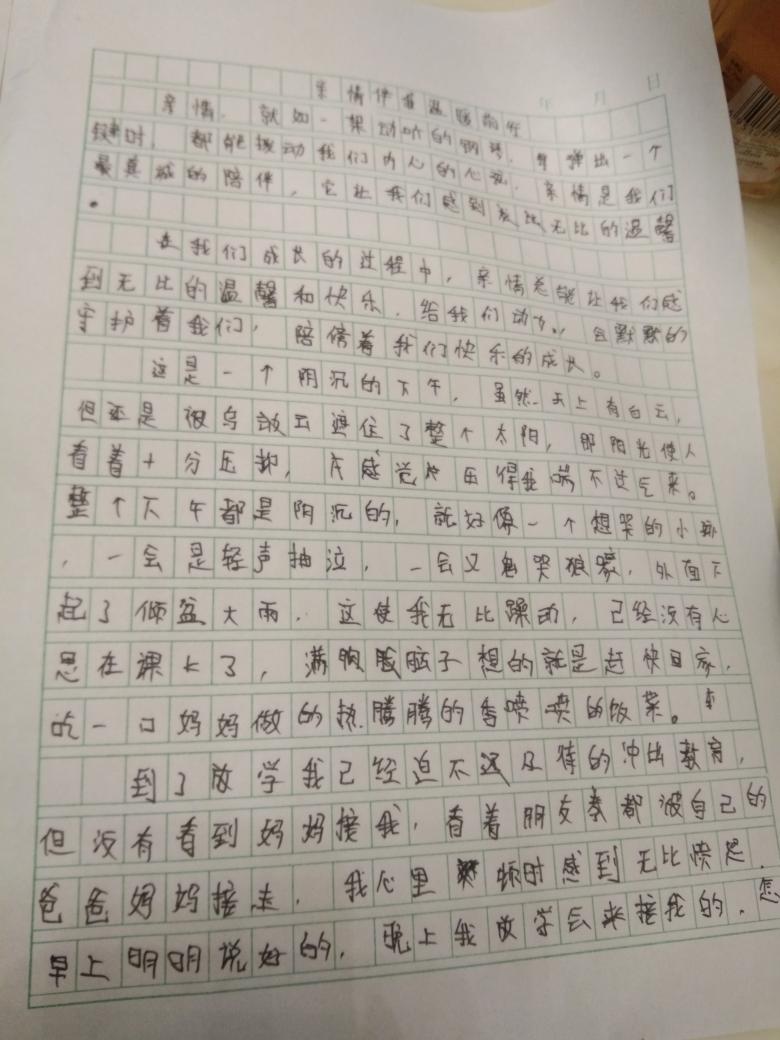 年 月 日
亲情伴着温暖前行
亲情，就如一架动听的钢琴，每弹出一个
键时，都能拨动我们内心的心弦，亲情是我们
最真诚的陪伴，它让我们感到无比的温馨
。
在我们成长的过程中，亲情总能让我们感
到无比的温馨和快乐，给我们动力，会默默的
守护着我们，陪着我们快乐的成长。
这是一个阴沉的下午，虽然天上有白云，
但还是被乌云遮住了整个太阳，那阳光使人
看着十分压抑，感觉压得我喘不过气来。
整个下午都是阴沉的，就好像一个想哭的小孩
，一会是轻声抽泣，一会又鬼哭狼嚎，外面下
起了倾盆大雨，这使我无比躁动，已经没有心
思在课上了，满脑子想的就是赶快回家，
吃一口妈妈做的热腾腾的香喷喷的饭菜。
到了放学我已经迫不及待的冲出教育，
但没有看到妈妈接我，看着朋友都被自己的
爸爸妈妈接走，我心里顿时感到无比愤怒，
早上明明说好的，晚上我放学会来接我的，怎